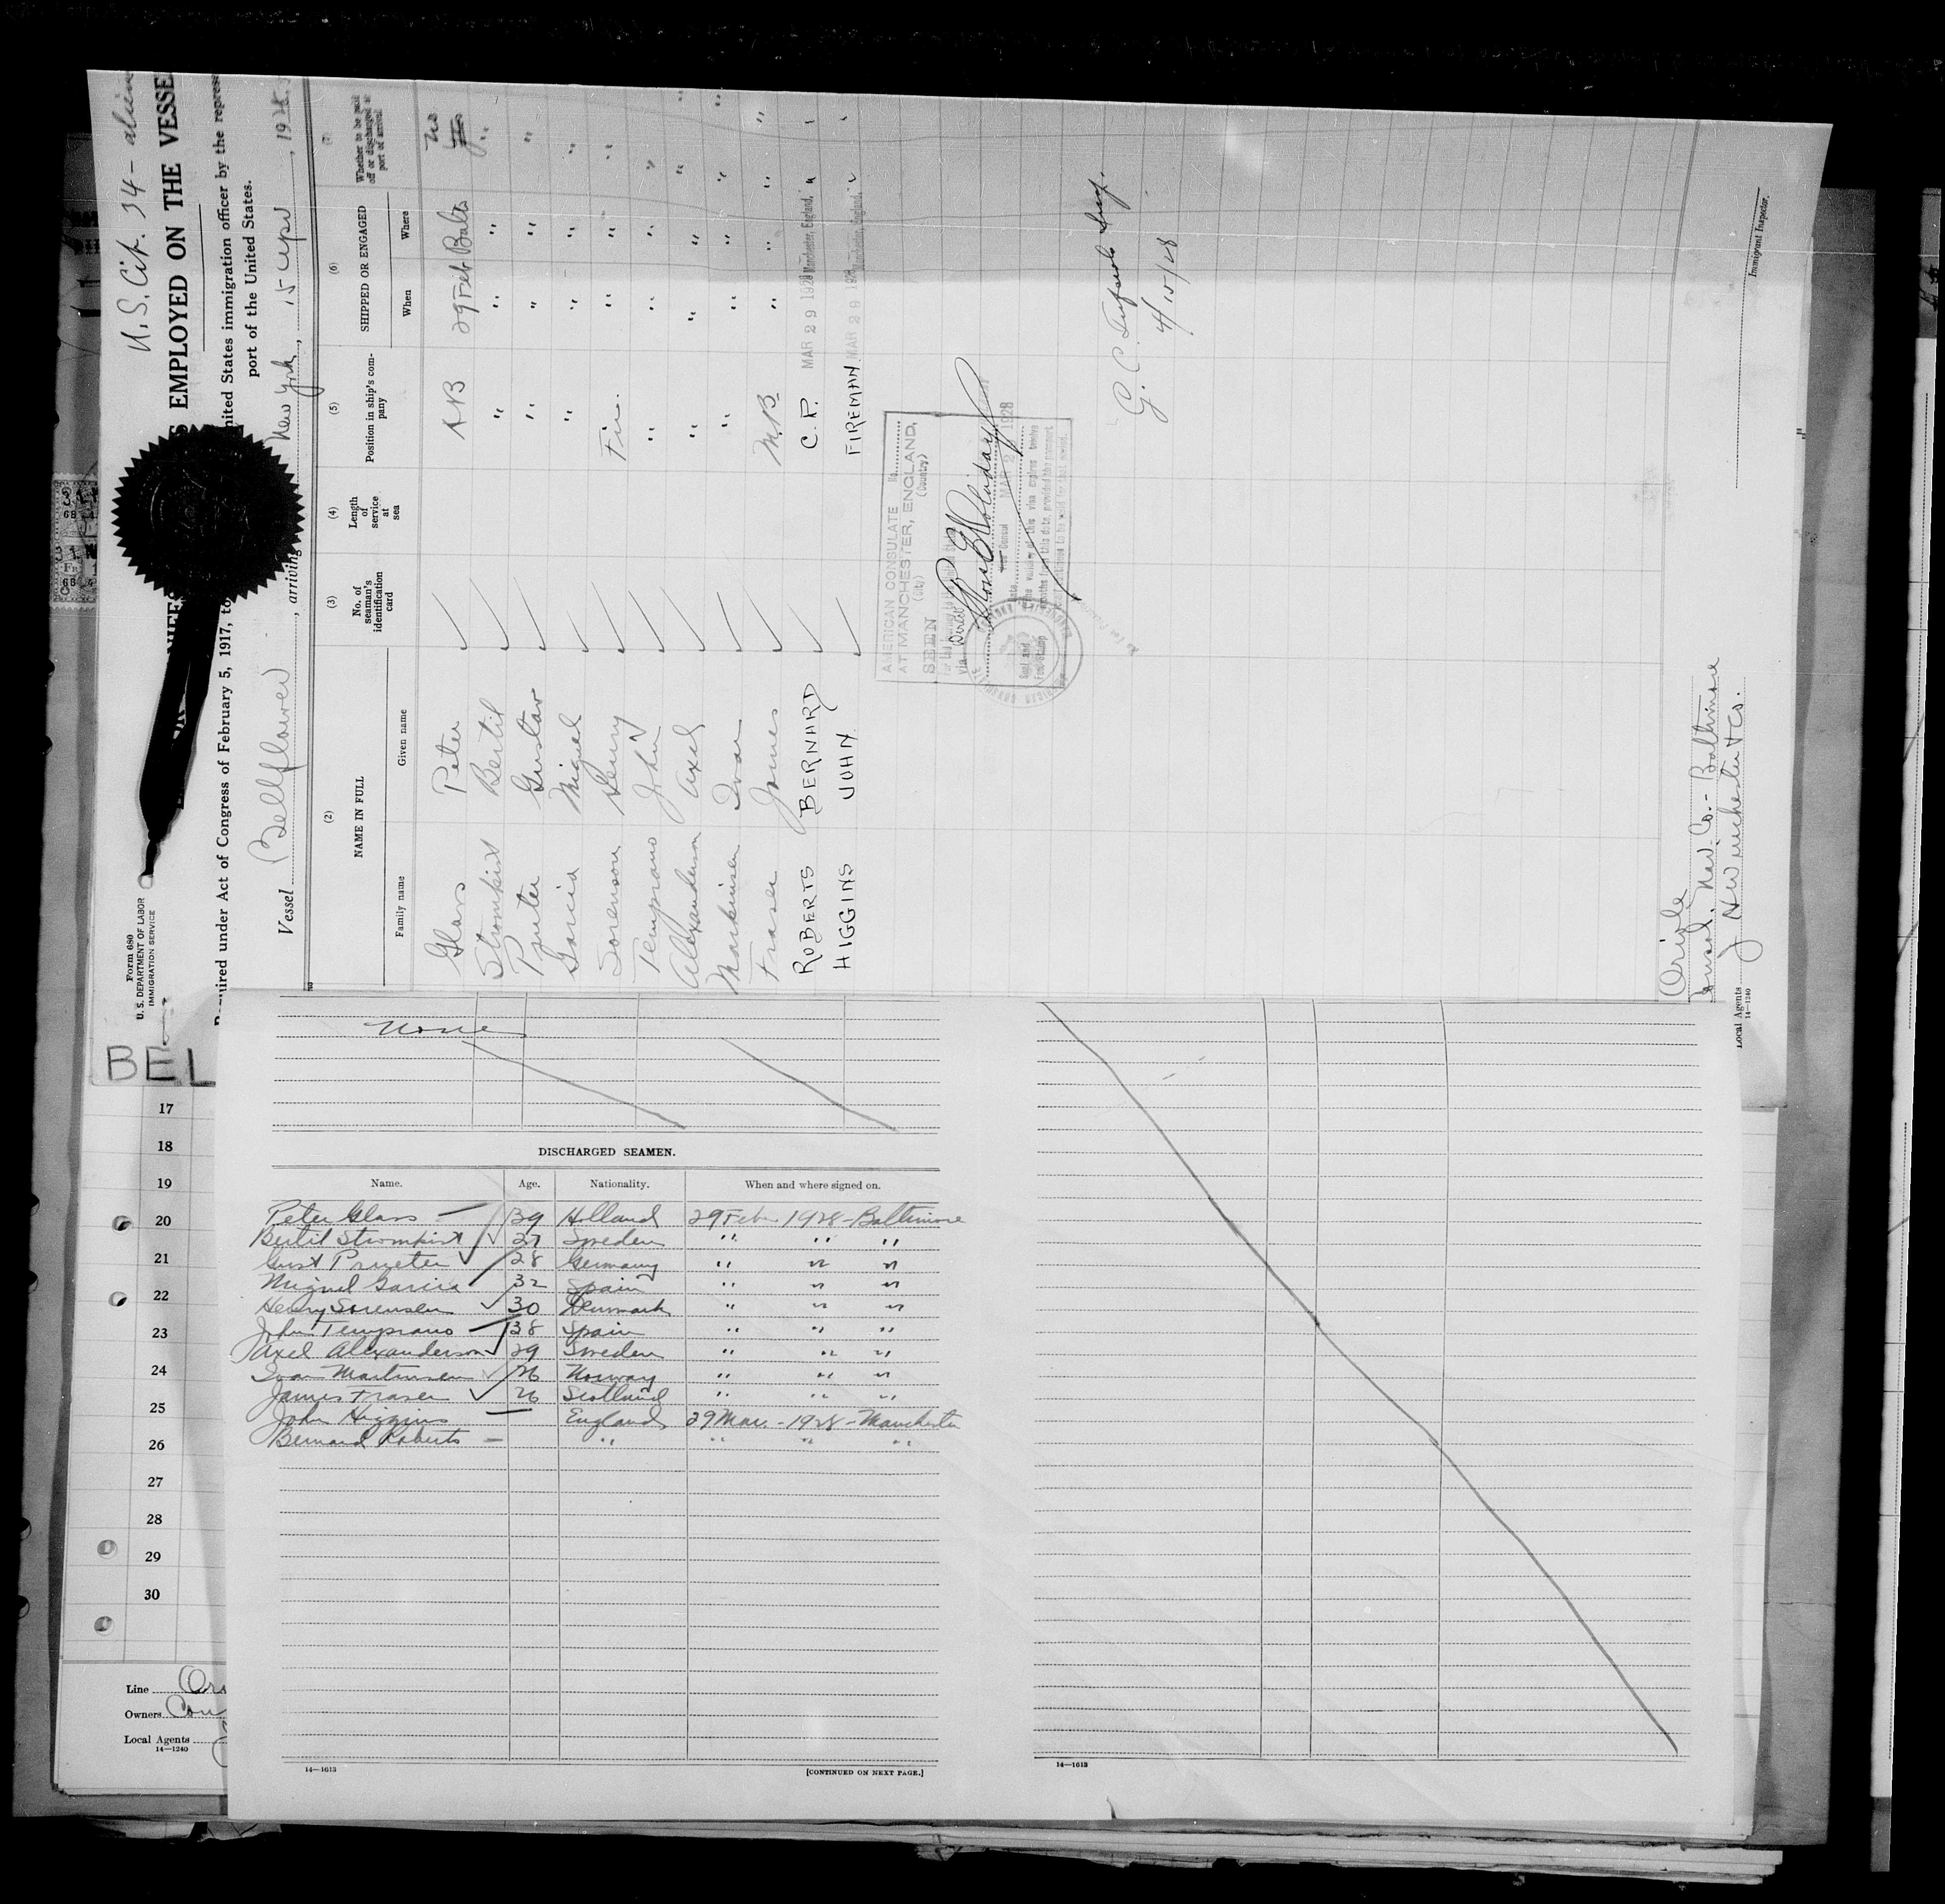 U.S. Cit. 34 - alien
EMPLOYED ON THE VESSE
Form 680
U. S. DEPARTMENT OF LABOR
IMMIGRATION SERVICE
uired under Act of Congress of February 5, 1917, to
nited States immigration officer by the repres
port of the United States.
Vessel Bellflower, arriving New York, 15 Apr, 1928
(2) (3) (4) (5) (6) (7)
NAME IN FULL
Family name Given name
No. of seaman's identification card
Length of service at sea
Position in ship's com-pany
SHIPPED OR ENGAGED
When Where
Whether to be paid off or discharged at port of arrival
Glass Peter AB 29 Feb Balto No
Stromkist Bertil " " " "
Prueter Gustav " " " "
Garcia Miguel " " " "
Sorenson Henry Fire. " " "
Temprano John " " " "
Alexanderson Axel " " " "
Martinsen Ivar " " " "
Fraser James M.B. " " "
ROBERTS BERNARD C.P. MAR 29 1928 Manchester, England, "
HIGGINS JOHN FIREMAN MAR 29 1928 Manchester, England, "
AMERICAN CONSULATE No.
AT MANCHESTER, ENGLAND,
(City) (Country)
SEEN
Via Direct
Consul
Date
MAR 2 1928
The validity of this visa expires twelve
months from this date, provided the passport
continues to be valid for that period.
Seal and
Fee Stamp
G. C.
4/15/28
Oriole
Consol. Nav. Co. - Baltimore
Local Agents J H Winchester & Co.
14—1240
Immigrant Inspector.
BEL
17
18
19
20
21
22
23
24
25
26
27
28
29
30
Line Ori
Owners Con
Local Agents
14—1240
None
DISCHARGED SEAMEN.
Name. Age. Nationality. When and where signed on.
Peter Glass 39 Holland 29 Feb 1928 - Baltimore
Bertil Stromkist 27 Sweden " " "
Gust Prueter 28 Germany " " "
Miguel Garcia 32 Spain " " "
Henry Sorensen 30 Denmark " " "
John Temprano 38 Spain " " "
Axel Alexanderson 29 Sweden " " "
Ivar Martinsen 26 Norway " " "
James Fraser 26 Scotland " " "
John Higgins England 29 Mar. - 1928 - Manchester
Bernard Roberts " " " "
14—1613 [CONTINUED ON NEXT PAGE.]
14—1613